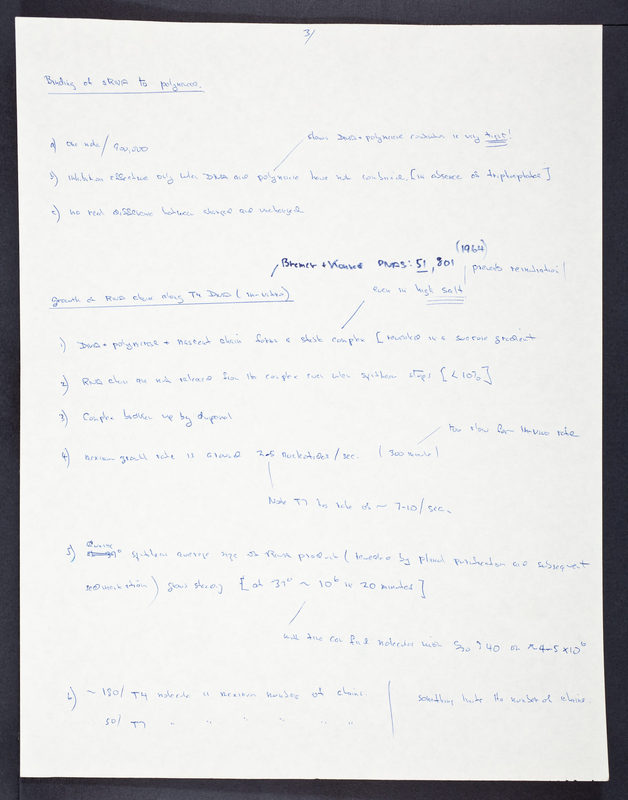 3/
Binding of sRNA to polymerase.
a) one mole / 800,000
shows DNA + polymerase combination is very tight!
b) inhibition effective only when DNA and polymerase have not combined. [in absence of triphosphates]
c) no real difference between charged and uncharged
Bremer + Konrad PNAS: 51, 801 (1964)
prevents reinitiation!
Growth of RNA chain along T4 DNA (in vitro)
even in high salt
1) DNA + polymerase + nascent chain forms a stable complex [revealed in a sucrose gradient
2) RNA chain are not released from the complex even when synthesis stops [< 10%]
3) Complex broken up by duponol
too slow for in vivo rate
4) maximum growth rate is around 2.5 nucleotides/sec. (300 minute)
Note T7 has rate of ~ 7-10/sec.
5) During synthesis average size of RNA product (revealed by phenol purification and subsequent
sedimentation) grows steadily [at 37° ~ 10⁶ in 20 minutes]
with time can find molecules with S₂₀ 40 or 4-5 x 10⁶
6) ~ 180/ T4 molecule is maximum number of chains.
something limits the number of chains.
50/ T7 " " " " " "